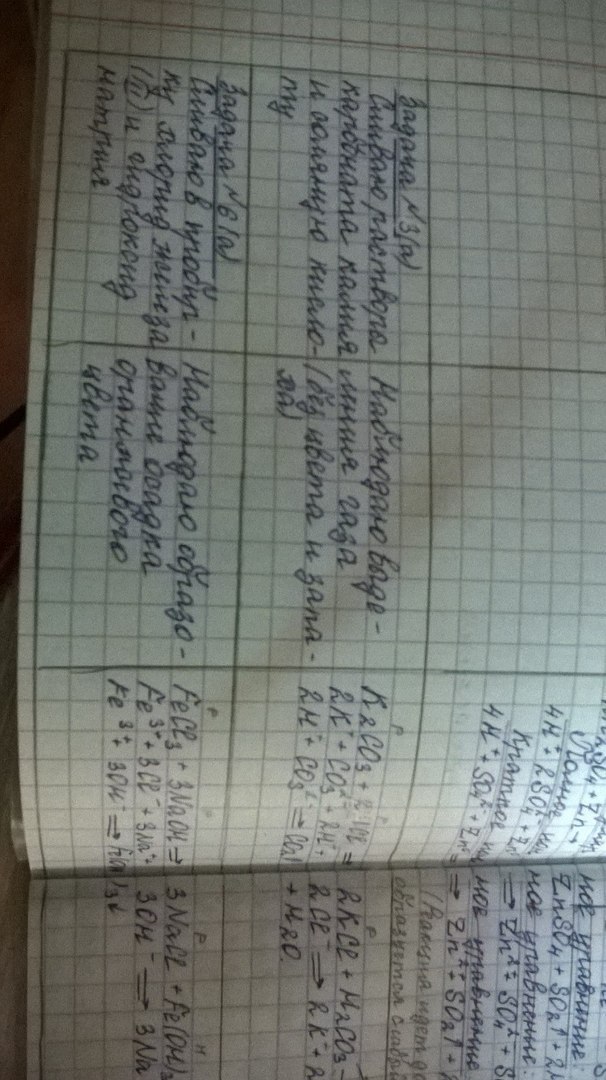 Задача №3(а)
Сливаю раствора
карбоната калия
и соляную кисло-
ту
Наблюдаю выде-
ления газа
(без цвета и запа-
ха)
K2CO3 + 2 ⇒ 2KCl + H2CO3
2K⁺ + CO3²⁻ + 2H⁺ +
2Cl⁻ ⇒ 2K⁺ + 2
2H⁺ + CO3²⁻ ⇒ CO2↑
+ H2O
Задача №6(а)
Сливаю в пробир-
ку хлорид железа
(III) и гидроксид
натрия
Наблюдаю образо-
вание осадка
оранжевого
цвета
FeCl3 + 3NaOH ⇒ 3NaCl + Fe(OH)3
Fe³⁺ + 3Cl⁻ + 3Na⁺
3OH⁻ ⇒ 3Na
Fe³⁺ + 3OH⁻ ⇒
ное уравнение:
ZnSO4 + SO2↑ + 2
4H⁺ + 2SO4²⁻ +
ное уравнение:
⇒ Zn²⁺ + SO4²⁻ + S
Краткое
ное уравнение
4H⁺ + SO4²⁻ +
⇒ Zn²⁺ + SO2↑ +
(Реакция идет
образуется